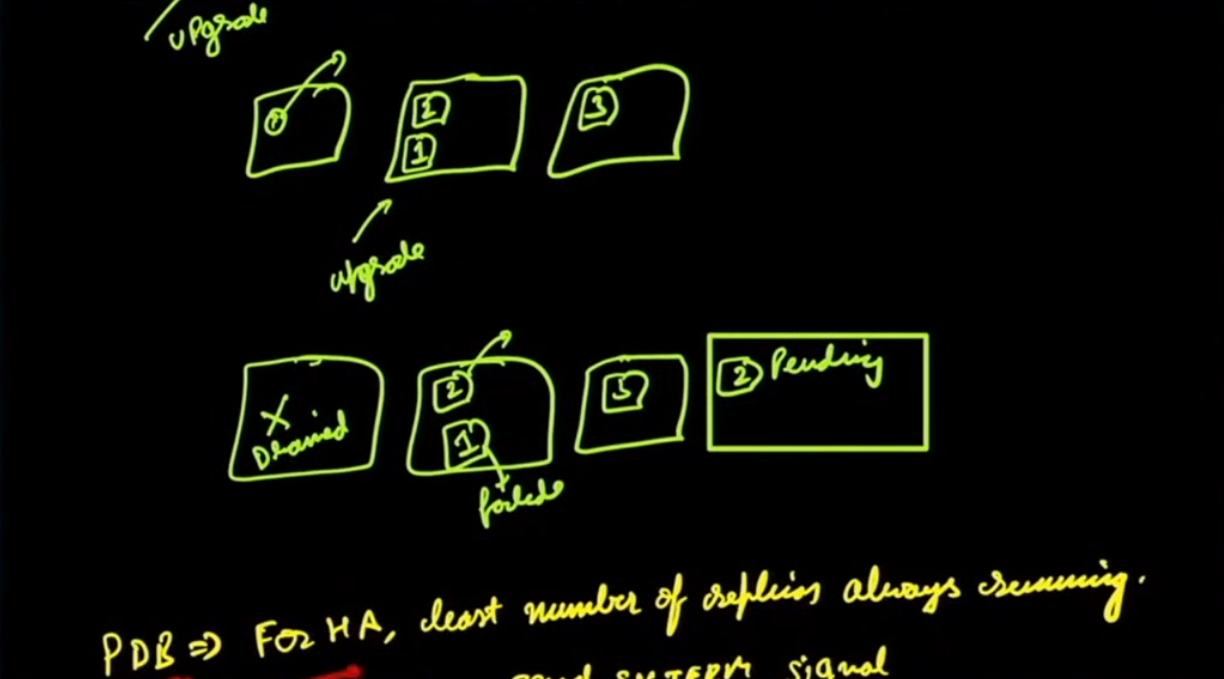 upgrade
1 2 3
1
upgrade
2 Pending
2 3
X
Drained 1
failed
PDB => For HA, least number of replicas always running.
send SIGTERM signal